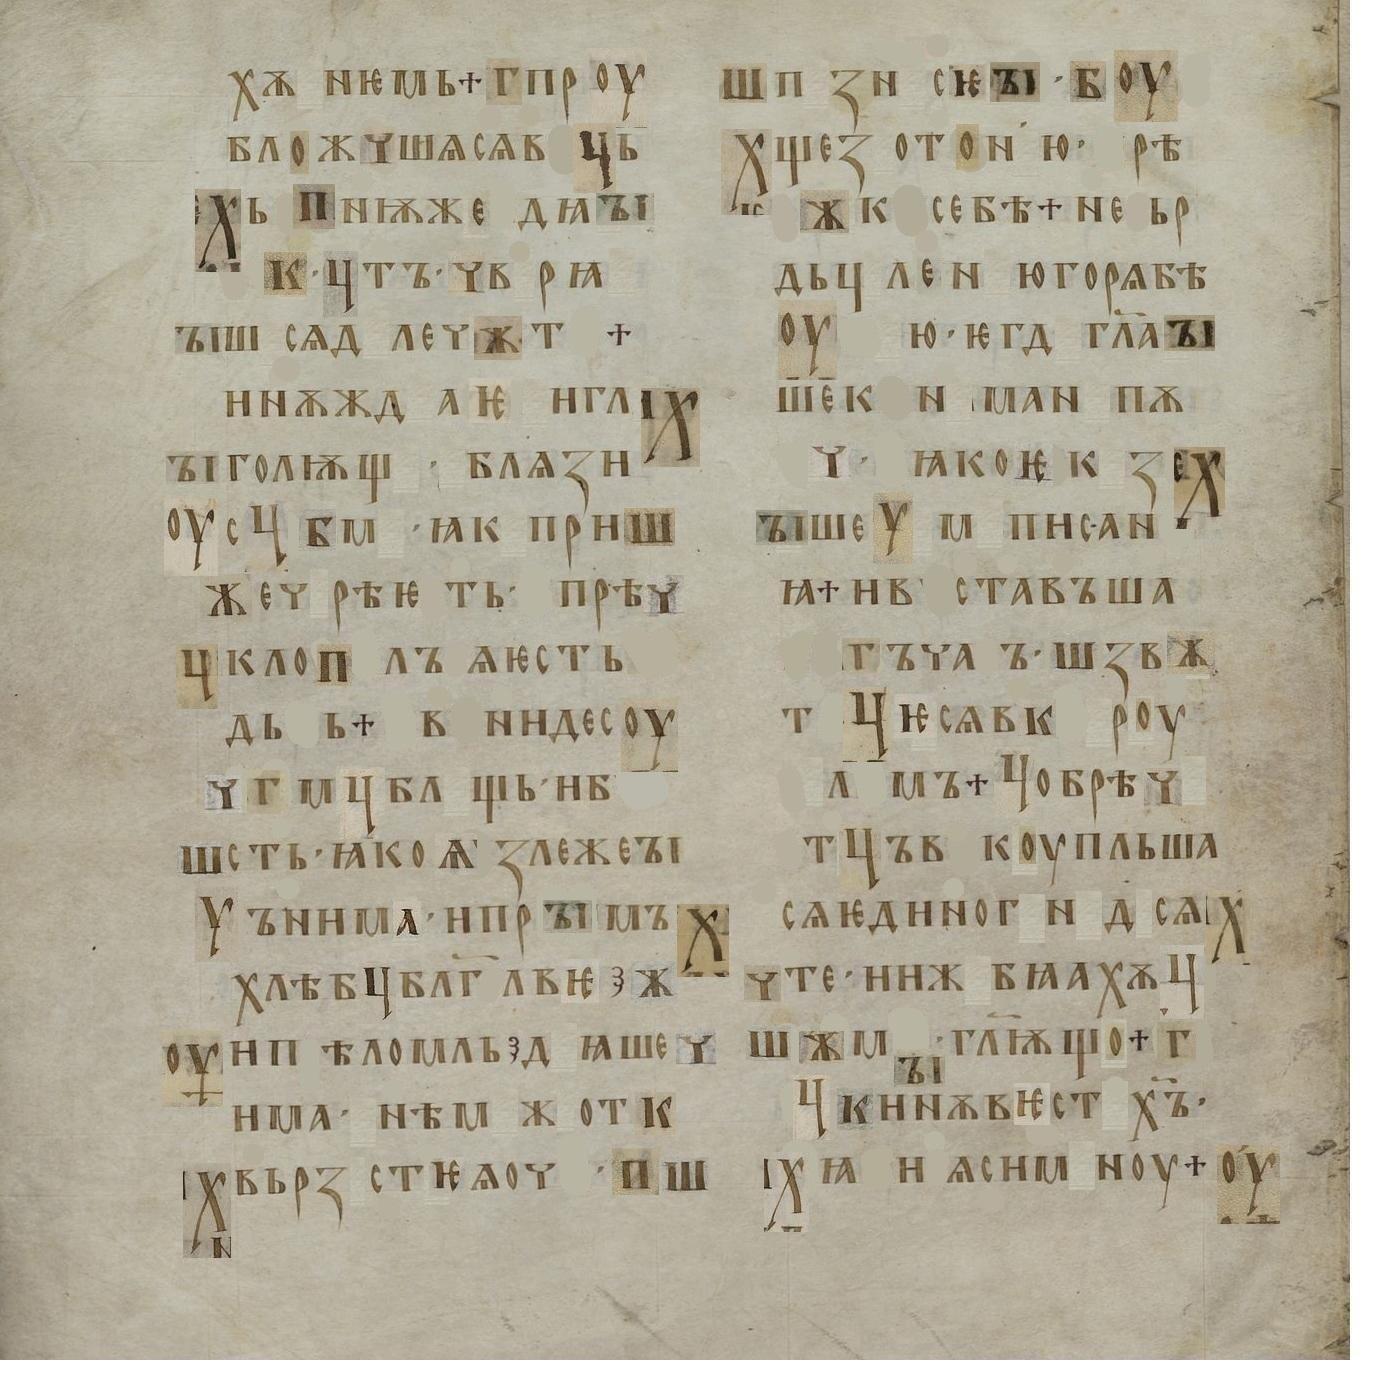 хѫ нѥмь+гпроу
бложүшѧсѧвчь
хь пнѭже дꙗъі
к·чтъ·үв рꙗ
ъішı сѧд леүжт +
ннѫжд аѥ нглх
ъіголѭщ · блѧзн
оусч бм ·ꙗк прнш
жеү рѣѥ ть· прѣү
чклоп лъ ѧѥсть
дь ь+ в ннідесоу
үг мчбл щь·нб
шсть·ꙗкоѫ злежеъі
у ъннма·нпръімъх
хлѣбчблаг лвѥзж
оунп ѣломльзд ꙗшеү
нма· нѣм ж отк
хвьрз стѥѧоү ·пш
шп зн сѥъі·боу
хщез отон ю· рѣ
жк себѣ+не ьр
дьч лен югорѧбѣ
оу ю·ѥгд глаъі
шек н ман пѫ
ү· ꙗкоѥк зех
ъішеу м пнсан
ꙗ+нв ставъша
гъүа ъ·шзвж
т чѥсѧвк роу
л мъ+чобрѣү
тчъв коупльша
сѧѥдиног н д сѧх
үте·ннж бꙗахѫч
шжмъі·глѭщо+г
чкннѫвѥст хъ·
хꙗ н ѧсним ноу+оу